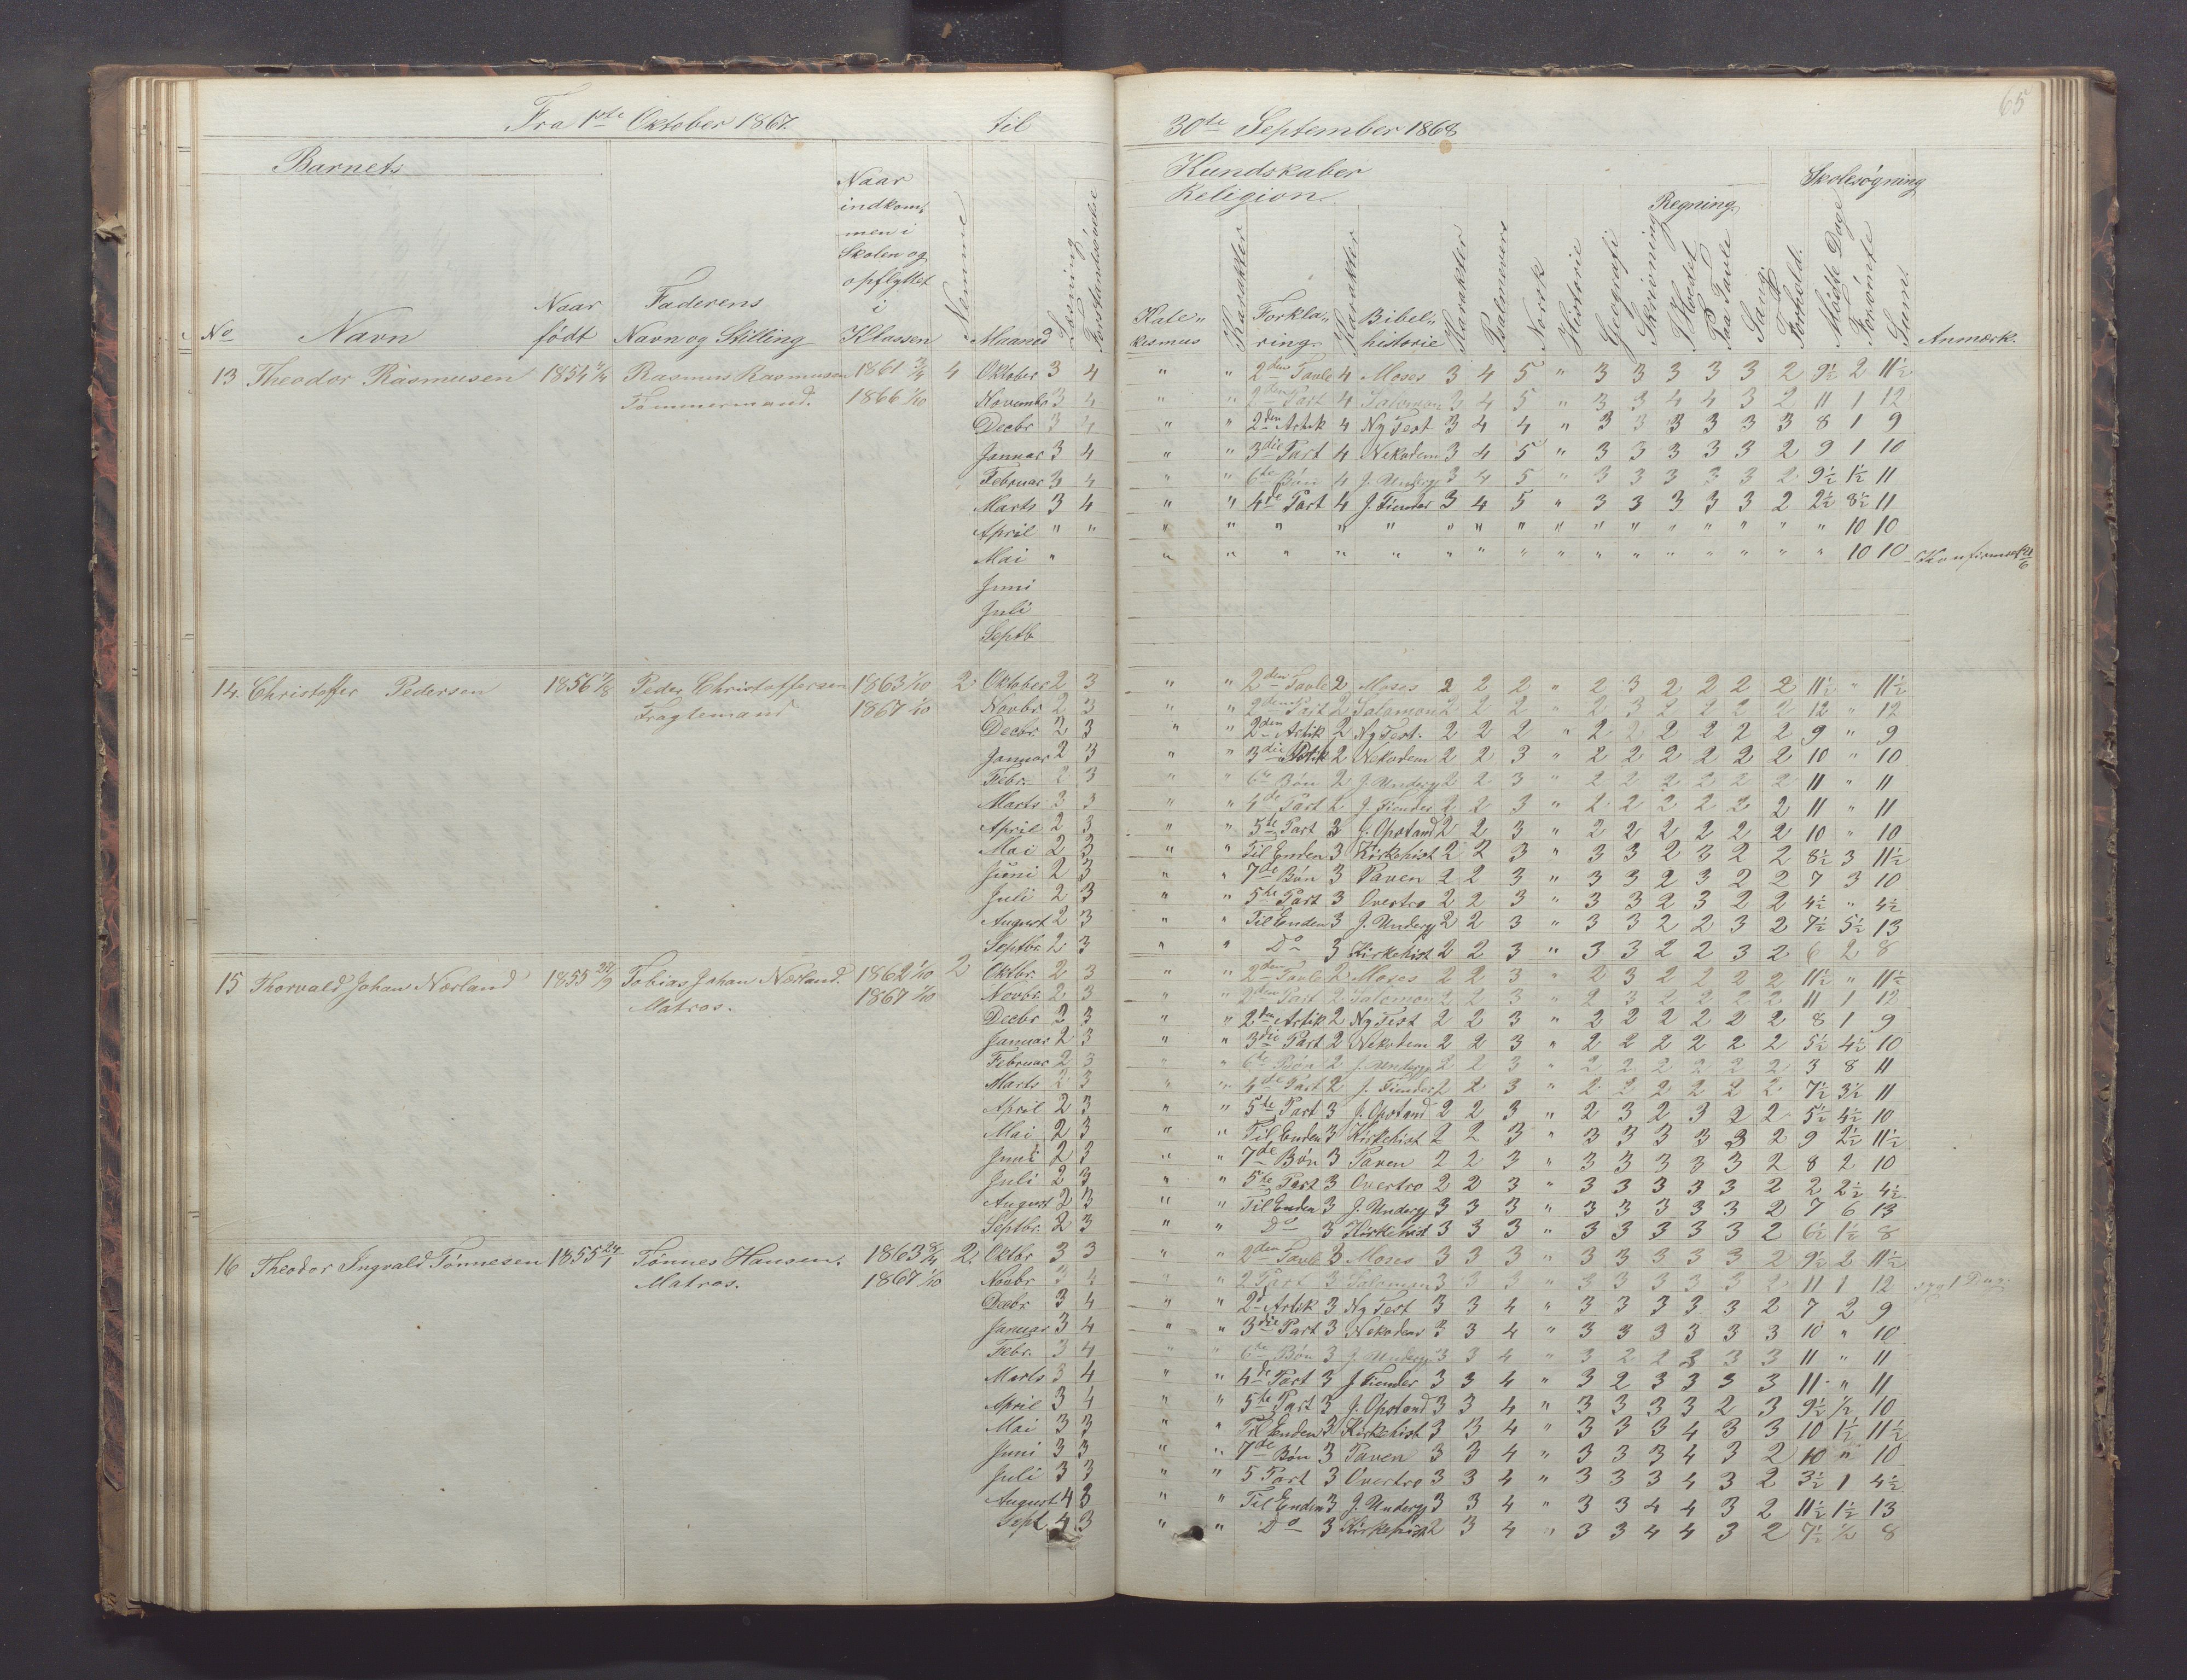 65
Fra 1ste Oktober 1867. til 30te September 1868
Barnets
Kundskaber
Skolesøgning
Religion.
Regning.
No Navn
Naar født
Faderens Navn og Stilling
Naar indkom. men i Skolen og opflyttet i Klassen
Nemmme
Maaned
Læsning
Forstandsøvelse
Kate„ kismus
Karakter
Forkla„ ring
Karakter
Bibel„ historie
Karakter
Psalmevers
Norsk
Historie
Geografi
Skrivning
I Hovdet
Paa Tavle
Sang
Forhold.
Mødte Dage
Forsømte
Sum.
Anmærk.
13 Theodor Rasmusen 1854 Rasmus Rasmusen 1861 4 Oktober 3 4 " " 2den Tavle 4 Moses 3 4 5 " 3 3 3 3 3 2 9½ 2 11½
Tømmermand. 1866 1/10 Novembr 3 4 " " 2den Part 4 Salomon 3 4 5 " 3 3 4 4 3 2 11 1 12
Decbr 3 4 " " 2den Artik 4 Ny Test 3 4 4 " 3 3 3 3 3 3 8 1 9
Januar 3 4 " " 3die Part 4 Nekodem 3 4 5 " 3 3 3 3 3 2 9 1 10
Februar 3 4 " " 6te Bøn 4 J. Underg 3 4 5 " 3 3 3 3 3 2 9½ 1½ 11
Marts 3 4 " " 4de Part 4 J. Fiender 3 4 5 " 3 3 3 3 3 2 2½ 8½ 11
April " " " " " " " " " " " " " " " " " " " 10 10
Mai " " " " " " " " " " " " " " " " " " 10 10 Konfirmert 21/6
Juni
Juli
Septb
14. Christoffer Pedersen 1856 Peder Christoffersen 1863 1/10 2 Oktober 2 3 " " 2den Tavle 2 Moses 2 2 2 " 2 3 2 2 2 2 11½ " 11½
Fragtemand 1867 1/10 Novbr. 2 3 " " 2den Part 2 Salomon 2 2 2 " 2 3 2 2 2 2 12 " 12
Decbr. 2 3 " " 2den Artik 2 Ny Test. 2 2 2 " 2 2 2 2 2 2 9 " 9
Januar 2 3 " " 3die 2 Nekodem 2 2 3 " 2 2 2 2 2 2 10 " 10
Febr. 2 3 " " 6te Bøn 2 J. Underg 2 2 3 " 2 2 2 2 2 2 11 " 11
Marts 3 3 " " 4de Part 2 J. Fiender 2 2 3 " 2 2 2 2 2 2 11 " 11
April 2 3 " " 5te Part 3 J. Opstand 2 2 3 " 2 2 2 2 2 2 10 " 10
Mai 2 3 " " Til Enden 3 Kirkehist 2 2 3 " 3 3 2 3 2 2 8½ 3 11½
Juni 2 3 " " 7de Bøn 3 Paven 2 2 3 " 3 3 2 3 2 2 7 3 10
Juli 2 3 " " 5te Part 3 Overtro 2 2 3 " 3 3 2 3 2 2 4½ " 4½
August 2 3 " " Til Enden 3 J. Underg 2 2 3 " 3 3 2 2 3 2 7½ 5½ 13
Septbr. 2 3 " " Do 3 Kirkehist 2 2 3 " 3 3 2 2 3 2 6 2 8
15 Thorvald Johan Nærland 1855 27/9 Tobias Johan Nærland. 1862 1/10 2 Oktbr. 2 3 " " 2den Tavle 2 Moses 2 2 3 " 2 3 2 2 2 2 11½ " 11½
Matros. 1867 1/10 Novbr. 2 3 " " 2den Part 2 Salomon 2 2 3 " 2 3 2 2 2 2 11 1 12
Decbr 2 3 " " 2den Artik 2 Ny Test 2 2 3 " 2 2 2 2 2 2 8 1 9
Januar 2 3 " " 3die Part 2 Nekodem 2 2 3 " 2 2 2 2 2 2 5½ 4½ 10
Februar 2 3 " " 6te Bøn 2 J. Underg 2 2 3 " 2 2 2 2 2 2 3 8 11
Marts 2 3 " " 4de Part 2 J. Fiender 2 2 3 " 2 2 2 2 2 2 7½ 3½ 11
April 2 3 " " 5te Part 3 J. Opstand 2 2 3 " 2 3 2 3 2 2 5½ 4½ 10
Mai 2 3 " " Til Enden 3 Kirkehist 2 2 3 " 3 3 3 3 3 2 9 2½ 11½
Juni 2 3 " " 7de Bøn 3 Paven 2 2 3 " 3 3 3 3 3 2 8 2 10
Juli 2 3 " " 5te Part 3 Overtro 2 2 3 " 3 3 3 3 3 2 2 2½ 4½
August 2 3 " " Til Enden 3 J. Underg 3 3 3 " 3 3 3 3 3 2 7 6 13
Septbr. 2 3 " " Do 3 Kirkehist 3 3 3 " 3 3 3 3 3 2 6½ 1½ 8
16 Theodor Ingvald Tønnesen 1855 24/1 Tønnes Hansen. 1863 2 Oktbr 3 3 " " 2den Tavle 3 Moses 3 3 3 " 3 3 3 3 3 2 9½ 2 11½
Matros. 1867 1/10 Novbr 3 4 " " 2 Part 3 Salomon 3 3 3 " 3 3 3 3 3 2 11 1 12 syg 1 Dag.
Decbr 3 4 " " 2d Artik 3 Ny Test 3 3 4 " 3 3 3 3 3 2 7 2 9
Januar 3 4 " " 3die Part 3 Nekodem 3 3 4 " 3 3 3 3 3 3 10 " 10
Febr. 3 4 " " 6te Bøn 3 J. Underg 3 3 4 " 3 2 2 3 3 3 11 " 11
Marts 3 4 " " 4de Part 3 J. Fiender 3 3 4 " 3 2 3 3 3 3 11 " 11
April 3 4 " " 5te Part 3 J. Opstand 3 3 4 " 3 3 3 3 2 3 9½ ½ 10
Mai 3 3 " " Til Enden 3 Kirkehist 3 3 4 " 3 3 3 4 3 3 10 1½ 11½
Juni 3 3 " " 7de Bøn 3 Paven 3 3 4 " 3 3 3 4 3 2 10 " 10
Juli 3 3 " " 5 Part 3 Overtro 3 3 4 " 3 3 3 4 3 2 3½ 1 4½
August 4 3 " " Til Enden 3 J. Underg 3 3 4 " 3 3 4 4 3 2 11½ 1½ 13
Sept. 4 3 " " Do 3 Kirkehist 2 3 4 " 3 3 4 4 3 2 7½ ½ 8